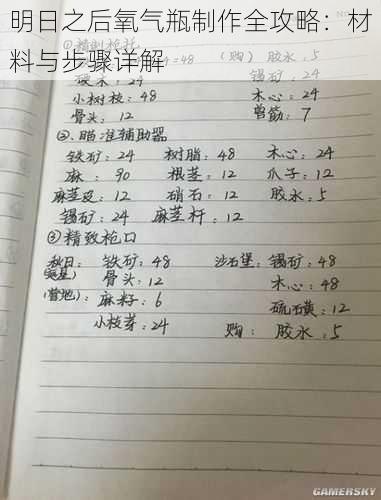 明日之后氧气瓶制作全攻略：材
料与步骤详解
①精制枪托
=48 (购) 胶水：5
硬木：24 锡矿：24
小树枝：48 木心：24
骨头：12 兽筋：7
②瞄准辅助器
铁矿：24 树脂：48 木心：24
麻：90 根茎：12 爪子：12
麻茎皮：12 硝石：12 胶水：5
锡矿：24 麻茎杆：12
③精致枪口
秋日：铁矿：48 沙石堡：锡矿：48
骨头：12 木心：48
(营地)：麻籽：6 硫磺：12
小枝芽：24 购：胶水：5
GAMERSKY